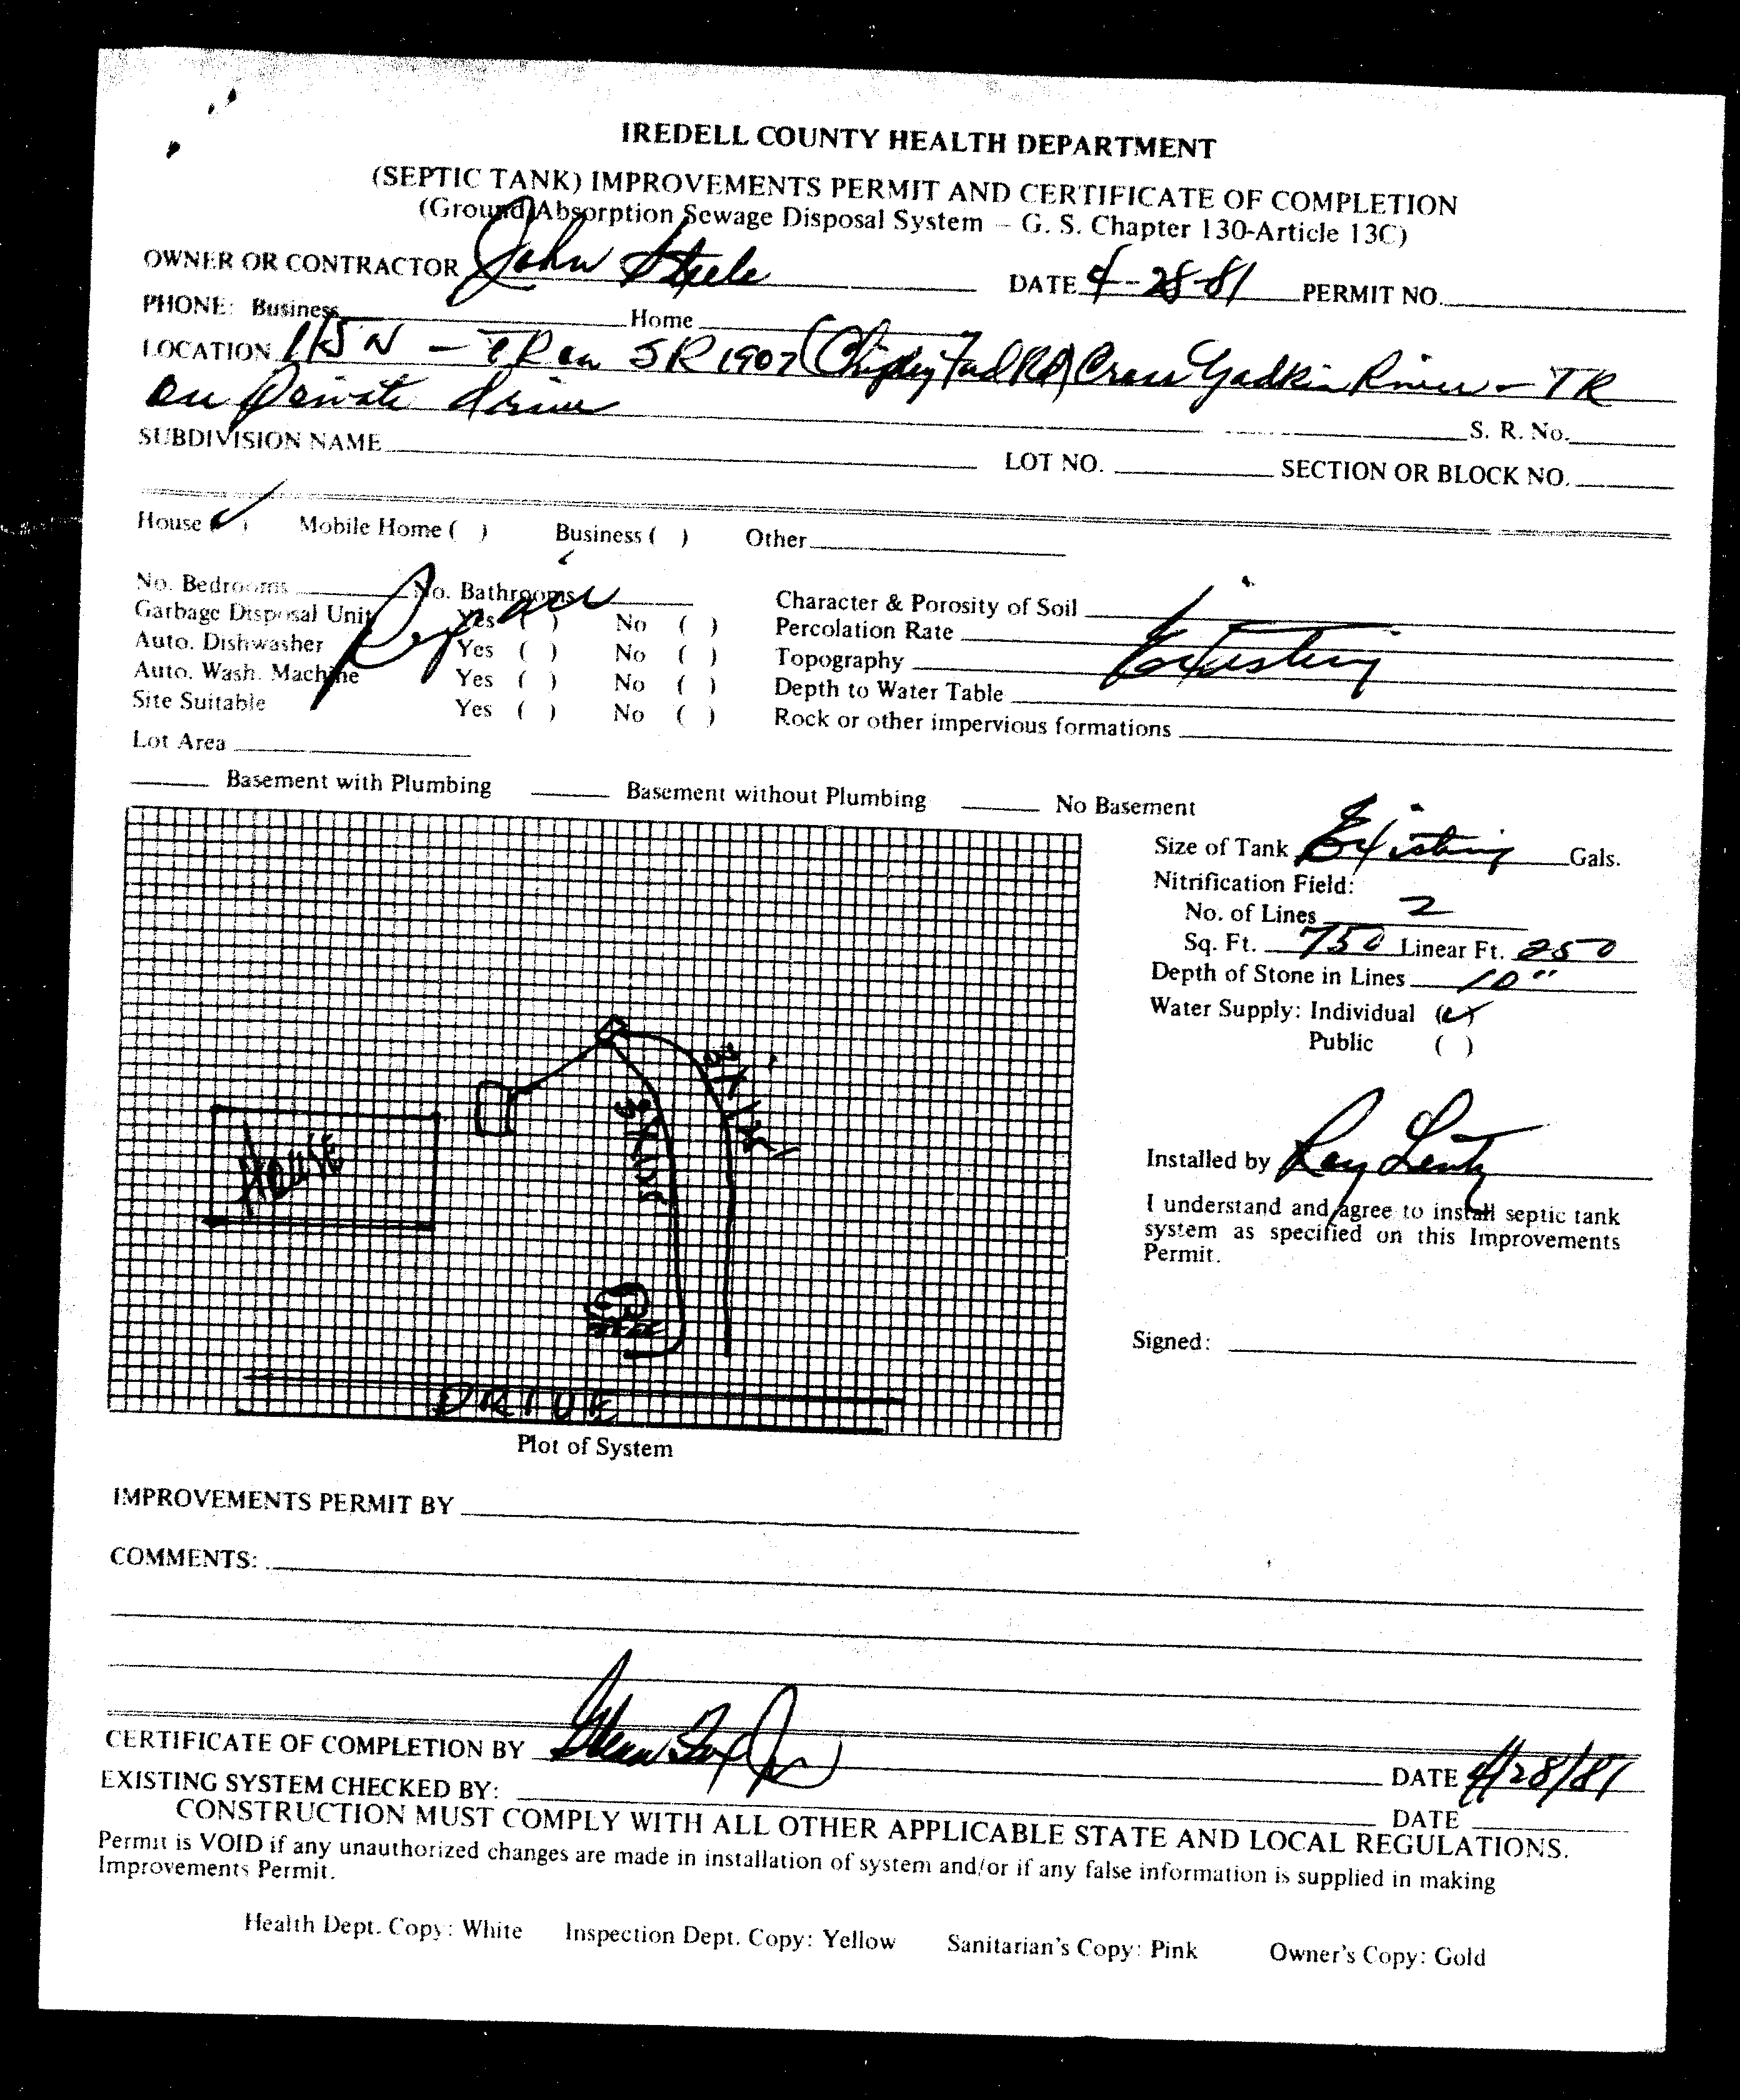 IREDELL COUNTY HEALTH DEPARTMENT
(SEPTIC TANK) IMPROVEMENTS PERMIT AND CERTIFICATE OF COMPLETION
(Ground Absorption Sewage Disposal System – G. S. Chapter 130-Article 13C)
OWNER OR CONTRACTOR John Steele DATE 4-28-81 PERMIT NO.
PHONE: Business Home
LOCATION 115 N – TR on SR 1907 (Chipley Ford Rd) Cross Yadkin River – TR
on Private drive
S. R. No.
SUBDIVISION NAME LOT NO. SECTION OR BLOCK NO.
House (✓) Mobile Home ( ) Business ( ) Other
No. Bedrooms No. Bathrooms Character & Porosity of Soil
Repair
Garbage Disposal Unit Yes ( ) No ( ) Percolation Rate
Auto. Dishwasher Yes ( ) No ( ) Topography Existing
Auto. Wash. Machine Yes ( ) No ( ) Depth to Water Table
Site Suitable Yes ( ) No ( ) Rock or other impervious formations
Lot Area
Basement with Plumbing Basement without Plumbing No Basement
Size of Tank Existing Gals.
Nitrification Field:
No. of Lines 2
Sq. Ft. 750 Linear Ft. 250
Depth of Stone in Lines 10"
Water Supply: Individual (✓)
Public ( )
House
DRIVE
Plot of System
Installed by Ray Lentz
I understand and agree to install septic tank
system as specified on this Improvements
Permit.
Signed:
IMPROVEMENTS PERMIT BY
COMMENTS:
CERTIFICATE OF COMPLETION BY DATE 4/28/81
EXISTING SYSTEM CHECKED BY: DATE
CONSTRUCTION MUST COMPLY WITH ALL OTHER APPLICABLE STATE AND LOCAL REGULATIONS.
Permit is VOID if any unauthorized changes are made in installation of system and/or if any false information is supplied in making
Improvements Permit.
Health Dept. Copy: White Inspection Dept. Copy: Yellow Sanitarian's Copy: Pink Owner's Copy: Gold